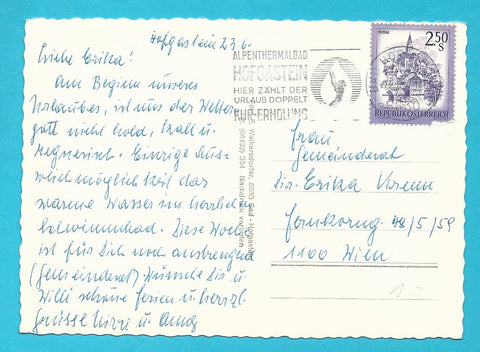 Hofgastein 23.6.
Liebe Eritka!
Am Beginn unseres
Urlaubes, ist uns der Wetter-
gott nicht hold, kalt u.
regnerisch. Einzige Aus-
weichmöglichkeit das
warme Wasser im herrlichen
Schwimmbad. Diese Woche
ist für Dich noch anstrengend
(Gemeinderat) Wünsche Dir u.
Willi schöne Ferien u. herzl.
Grüsse
ALPENTHERMALBAD
HOFGASTEIN
HIER ZÄHLT DER
URLAUB DOPPELT
KUR-ERHOLUNG
2.50
S
REPUBLIK ÖSTERREICH
Frau
Gemeinderat
Eritka
Fernkorng. 48/5/59
1100 Wien